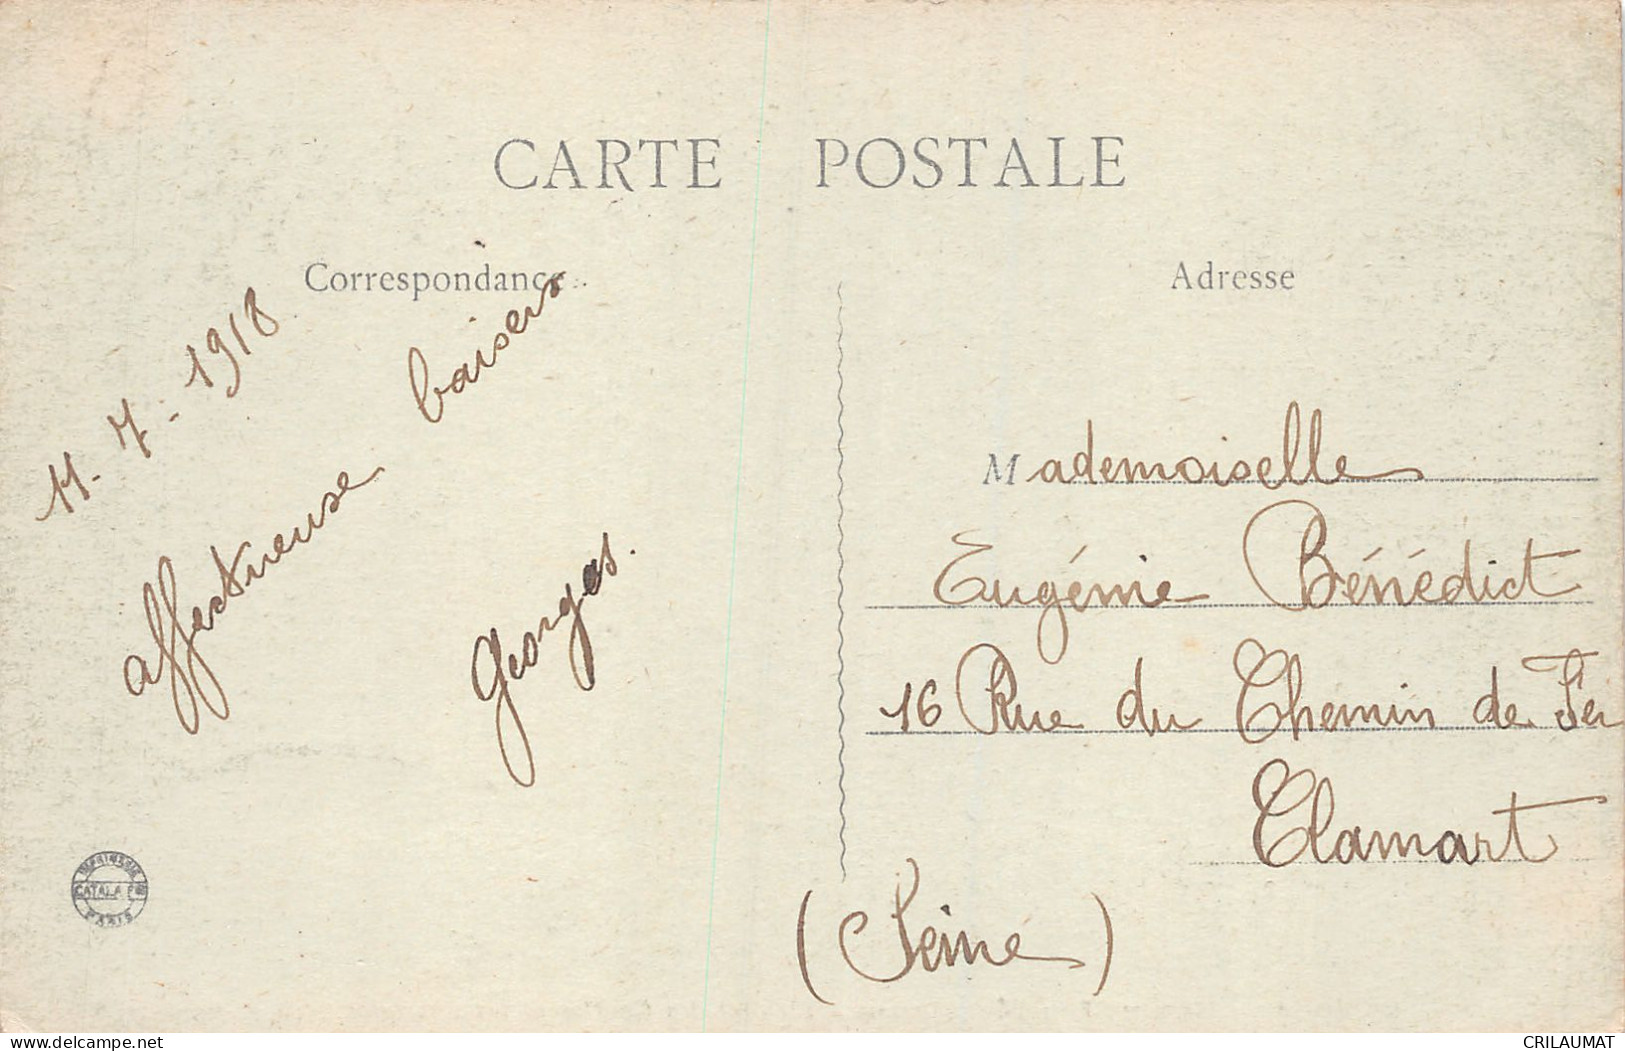 CARTE POSTALE
Correspondance
Adresse
11-7-1918
affectueuse baisers
Georges.
Mademoiselle
Eugénie Bénédict
16 Rue du Chemin de Fer
Clamart
(Seine)
IMPRIMERIE
CATALA F
PARIS
delcampe.net
CRILAUMAT